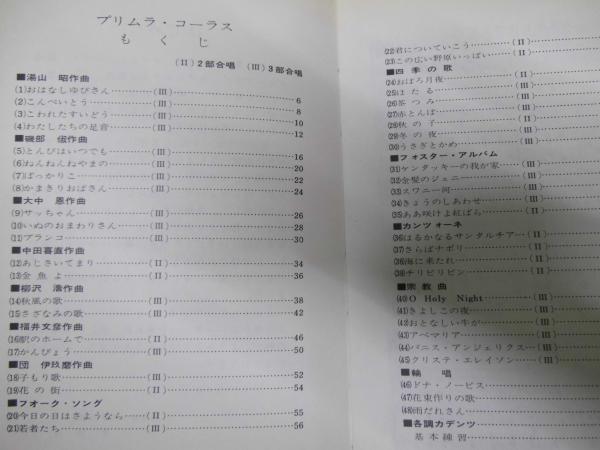 プリムラ・コーラス
もくじ
(II) 2部合唱 (III) 3部合唱
■湯山 昭作曲
(1)おはなしゆびさん…………(III)…………6
(2)こんぺいとう…………(III)…………8
(3)こわれたすいどう…………(III)…………10
(4)わたしたちの足音…………(III)…………12
■磯部 俶作曲
(5)とんびはいつでも…………(III)…………16
(6)ねんねんねやまの…………(III)…………20
(7)ばっかりこ…………(III)…………22
(8)かまきりおばさん…………(III)…………24
■大中 恩作曲
(9)サッちゃん…………(III)…………26
(10)いぬのおまわりさん…………(III)…………28
(11)ブランコ…………(III)…………30
■中田喜直作曲
(12)あじさいてまり…………(II)…………34
(13)金魚よ…………(II)…………36
■柳沢 浩作曲
(14)秋風の歌…………(III)…………38
(15)さざなみの歌…………(III)…………42
■福井文彦作曲
(16)駅のホームで…………(II)…………46
(17)かんぴょう…………(III)…………50
■団 伊玖磨作曲
(18)子もり歌…………(III)…………52
(19)花の街…………(II)…………54
■フオーク・ソング
(20)今日の日はさようなら…………(II)…………55
(21)若者たち…………(III)…………56
(22)君についていこう…………(II)…………
(23)この広い野原いっぱい…………(II)…………
■四季の歌
(24)おぼろ月夜…………(II)…………
(25)ほたる…………(III)…………
(26)茶つみ…………(III)…………
(27)赤とんぼ…………(III)…………
(28)秋の子…………(II)…………
(29)冬の夜…………(III)…………
(30)うさぎとかめ…………(III)…………
■フォスター・アルバム
(31)ケンタッキーの我が家…………(III)…………
(32)金髪のジェニー…………(III)…………
(33)スワニー河…………(III)…………
(34)きょうのしあわせ…………(III)…………
(35)ああ咲けよ紅ばら…………(II)…………
■カンツォーネ
(36)はるかなるサンタルチア…(II)…………
(37)さらばナポリ…………(II)…………
(38)海に来たれ…………(II)…………
(39)チリビリビン…………(II)…………
■宗教曲
(40)O Holy Night…………(III)…………
(41)きよしこの夜…………(III)…………
(42)おとなしい牛が…………(III)…………
(43)アベマリア…………(III)…………
(44)パニス・アンジェリクス…(III)…………
(45)クリステ・エレイソン…(III)…………
■輪唱
(46)ドナ・ノービス…………
(47)花束作りの歌…………
(48)雨だれさん…………
■各調カデンツ
基本練習…………